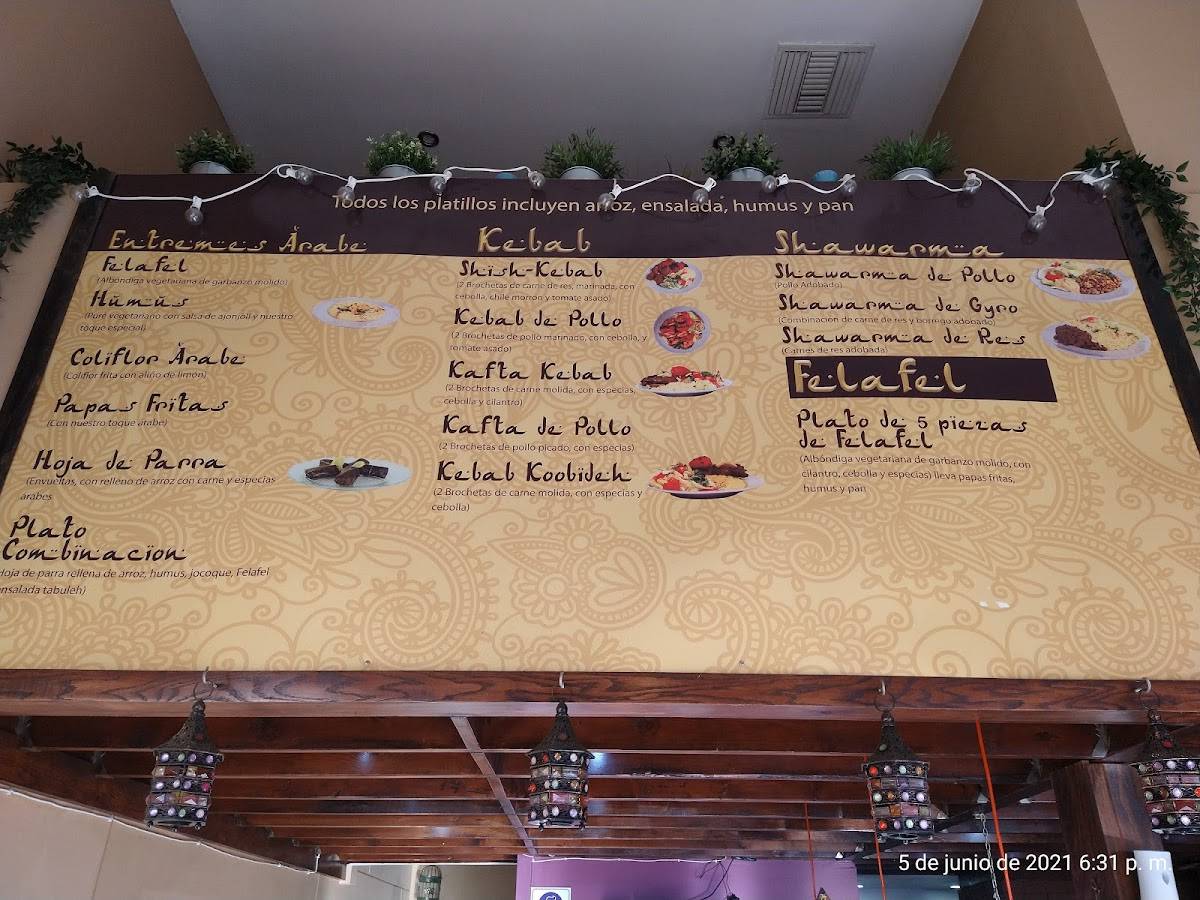 Todos los platillos incluyen arroz, ensalada, humus y pan
Entremes Àrabe
Felafel
(Albóndiga vegetariana de garbanzo molido)
Humus
(Puré vegetariano con salsa de ajonjolí y nuestro
toque especial)
Coliflor Àrabe
(Coliflor frita con aliño de limón)
Papas Fritas
(Con nuestro toque árabe)
Hoja de Parra
(Envueltas, con relleno de arroz con carne y especias
árabes
Plato
Combinacion
Hoja de parra rellena de arroz, humus, jocoque, Felafel
ensalada tabuleh)
Kebab
Shish-Kebab
(2 Brochetas de carne de res, marinada, con
cebolla, chile morrón y tomate asado)
Kebab de Pollo
(2 Brochetas de pollo marinado, con cebolla, y
tomate asado)
Kafta Kebab
(2 Brochetas de carne molida, con especias,
cebolla y cilantro)
Kafta de Pollo
(2 Brochetas de pollo picado, con especias)
Kebab Koobideh
(2 Brochetas de carne molida, con especias y
cebolla)
Shawarma
Shawarma de Pollo
(Pollo Adobado)
Shawarma de Gyro
(Combinación de carne de res y borrego adobado)
Shawarma de Res
(Carnes de res adobada)
Felafel
Plato de 5 piezas
de Felafel
(Albóndiga vegetariana de garbanzo molido, con
cilantro, cebolla y especias) lleva papas fritas,
humus y pan
5 de junio de 2021 6:31 p. m.